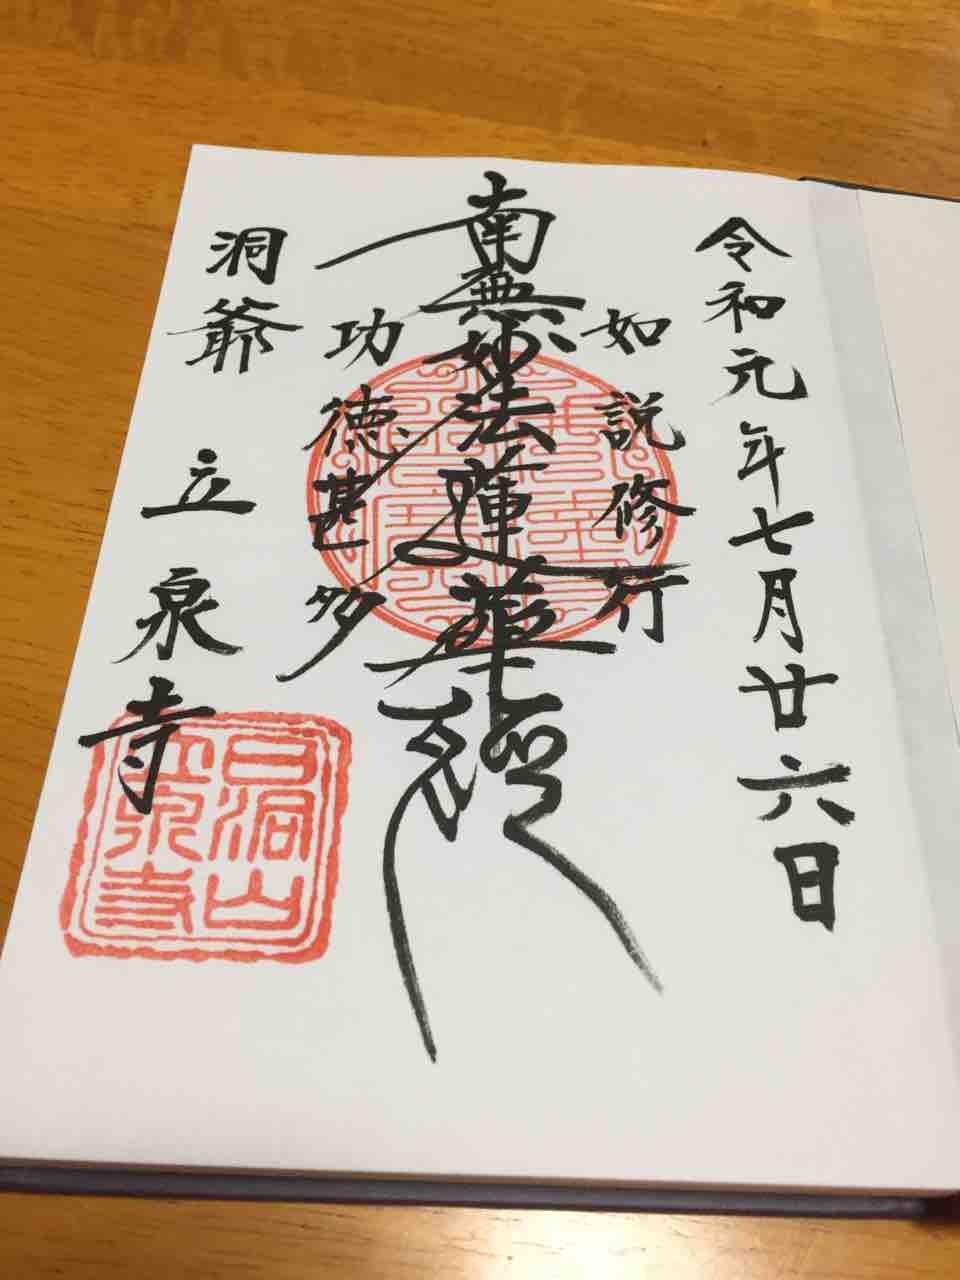 令和元年七月廿六日
如説修行
南無妙法蓮華経
功徳甚多
洞爺 立泉寺
洞山
立泉寺